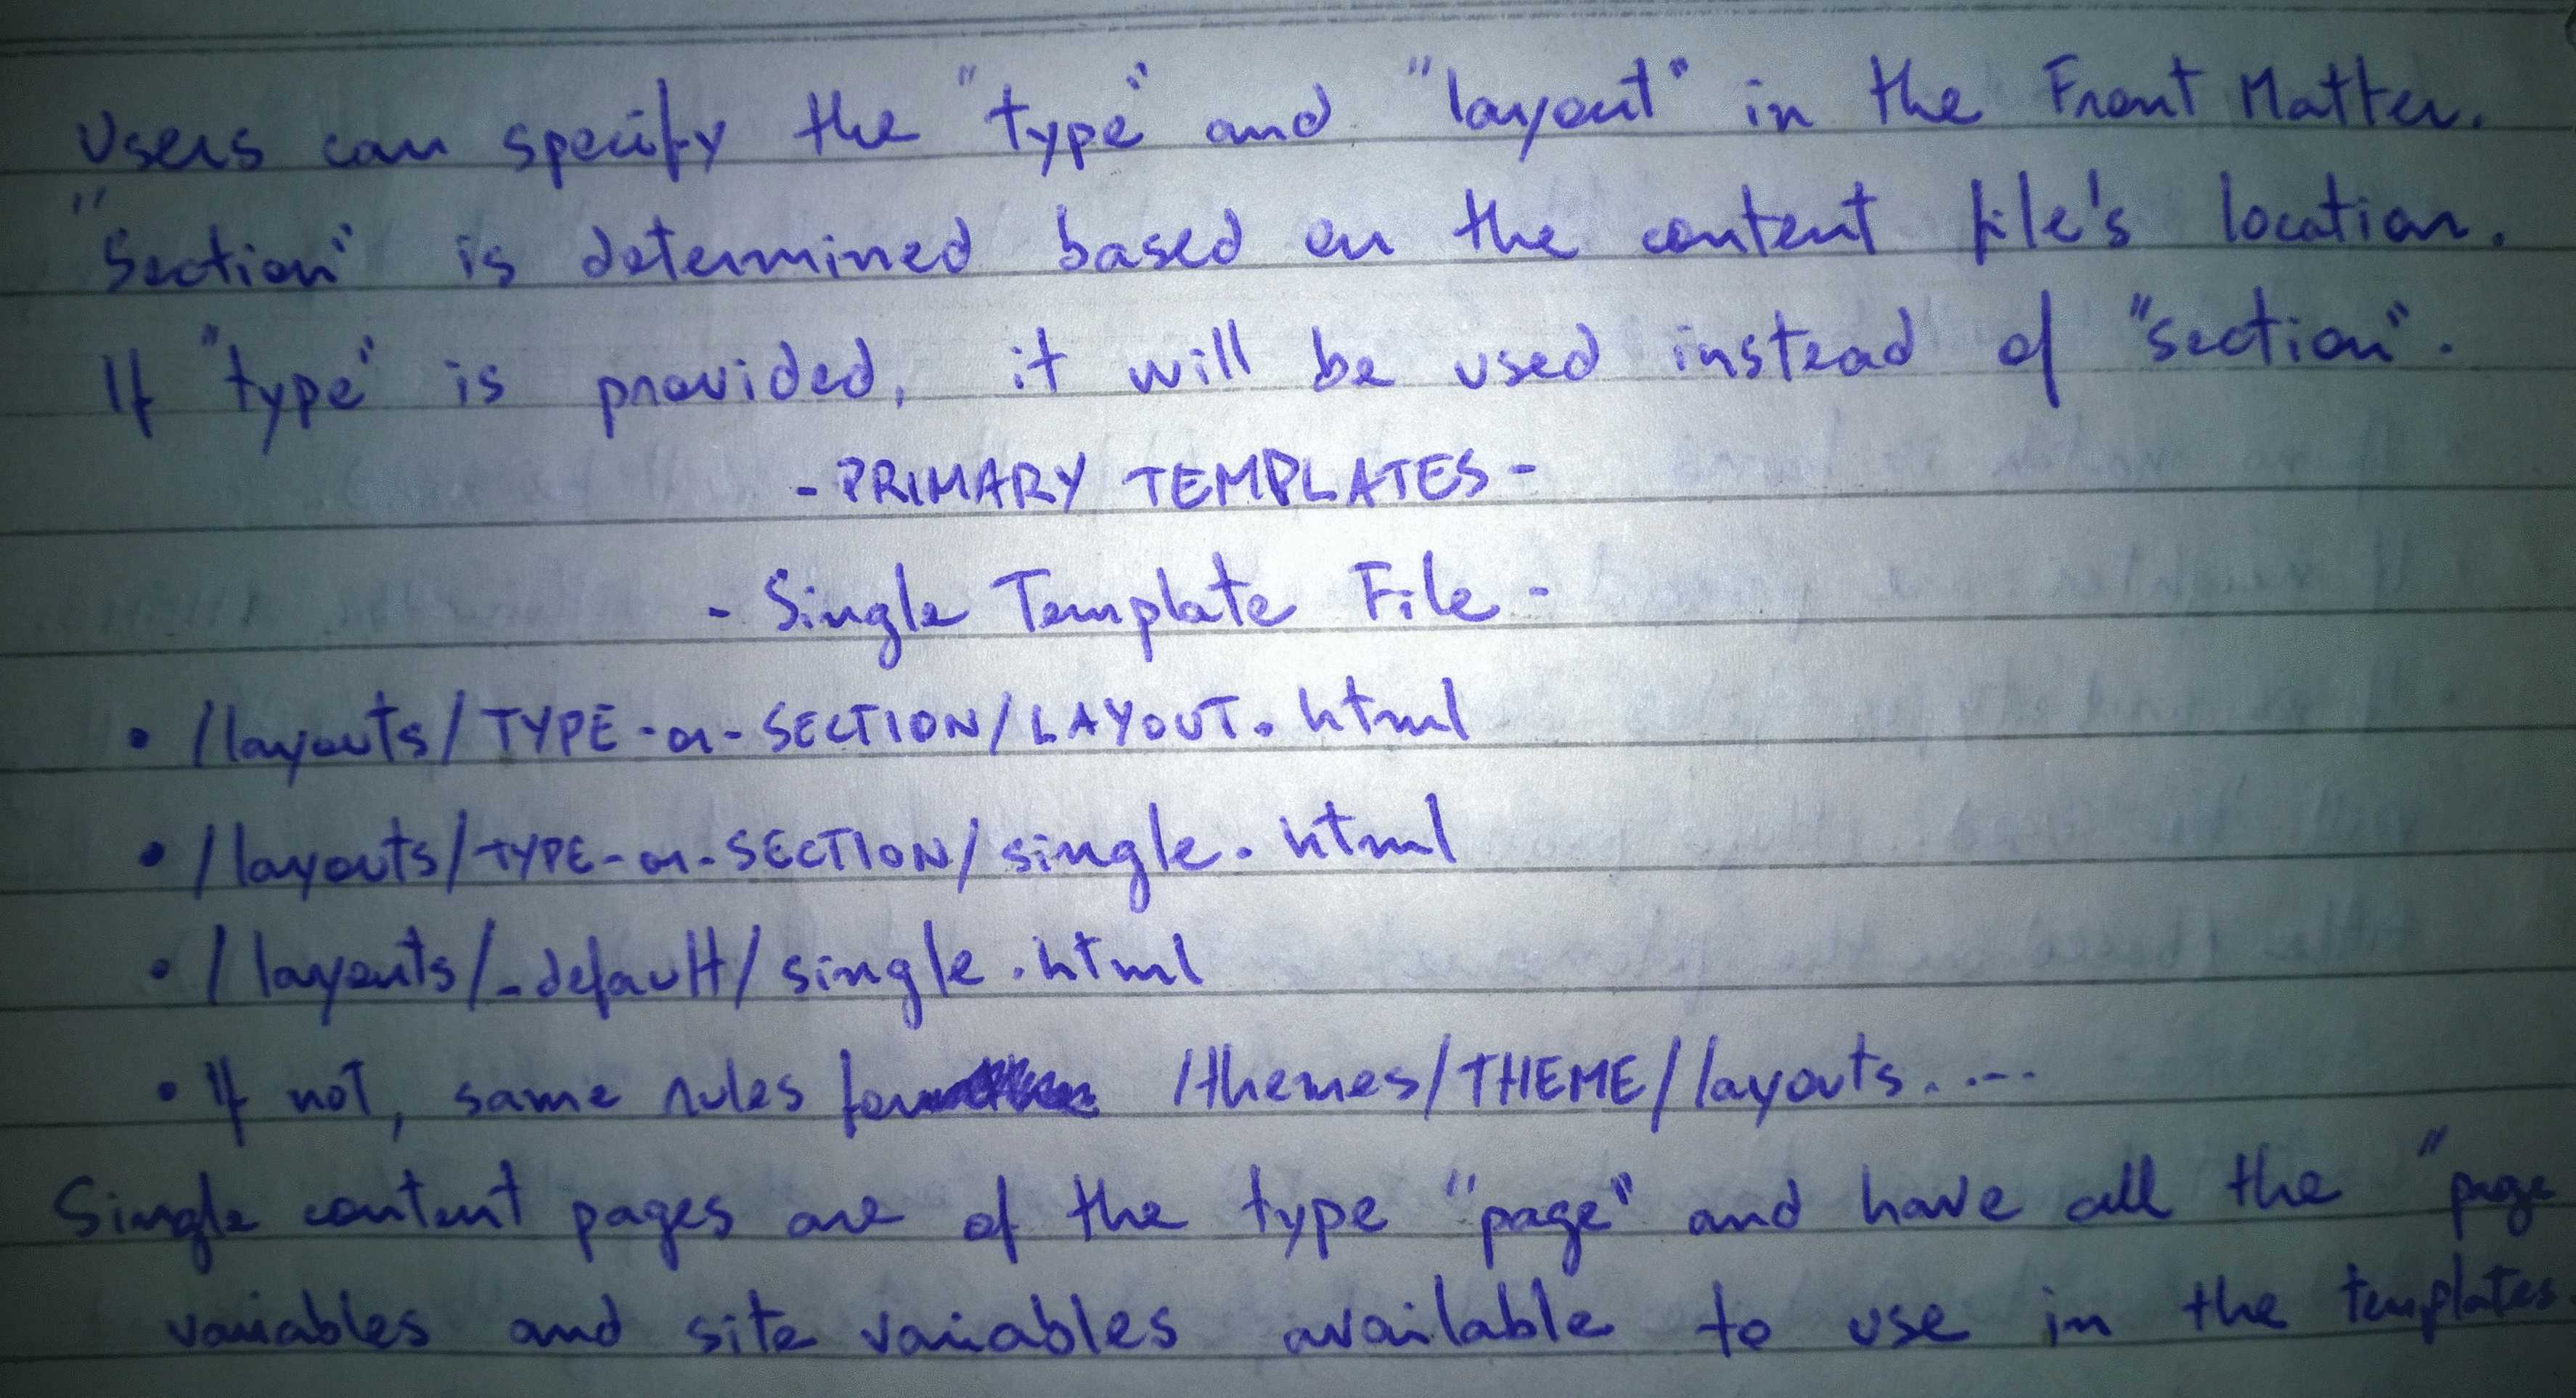 Users can specify the "type" and "layout" in the Front Matter.
"Section" is determined based on the content file's location.
If "type" is provided, it will be used instead of "section".
- PRIMARY TEMPLATES -
- Single Template File -
• /layouts/TYPE-or-SECTION/LAYOUT.html
• /layouts/TYPE-or-SECTION/single.html
• /layouts/_default/single.html
• If not, same rules for /themes/THEME/layouts.....
Single content pages are of the type "page" and have all the "page
variables and site variables available to use in the templates